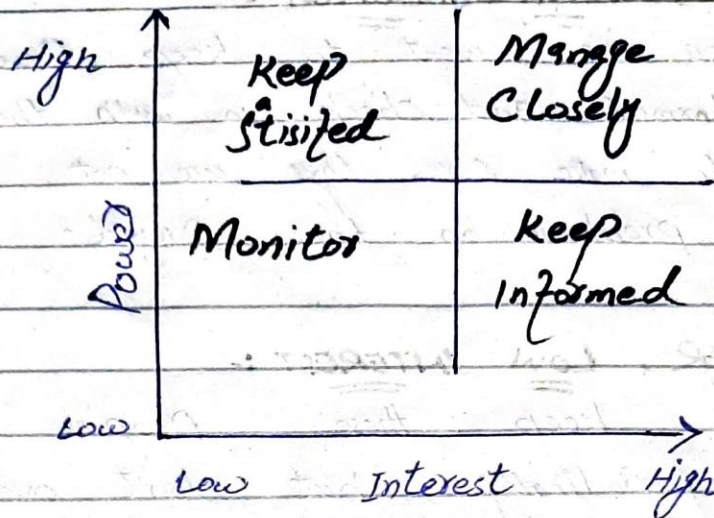 High
Keep
satisifed
Manage
Closely
Power
Monitor
Keep
Informed
Low
Low Interest High